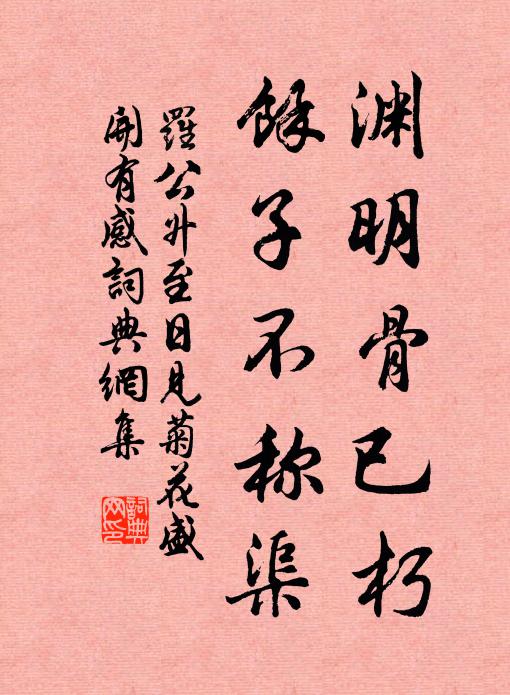 渊明骨已朽
餘子不称渠
羅公升至日見菊花盛
開有感詞典網集
詞典
网印